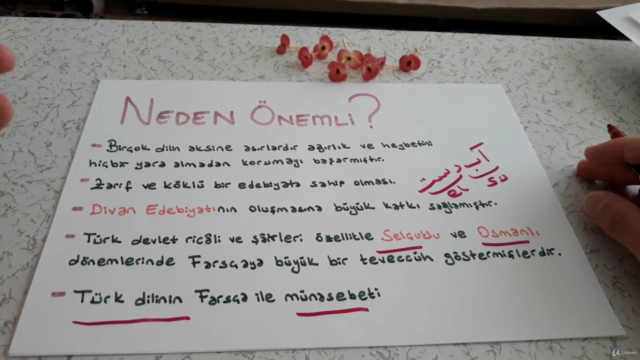 NEDEN ÖNEMLİ?
- Birçok dilin aksine asırlardır ağırlık ve heybetini
hiçbir yara almadan korumayı başarmıştır.
- Zarif ve köklü bir edebiyata sahip olması.
آب دست
el su
- Divan Edebiyatının oluşmasına büyük katkı sağlamıştır.
- Türk devlet ricâli ve şâirleri özellikle Selçuklu ve Osmanlı
dönemlerinde Farsçaya büyük bir teveccüh göstermişlerdir.
- Türk dilinin Farsça ile münasebeti